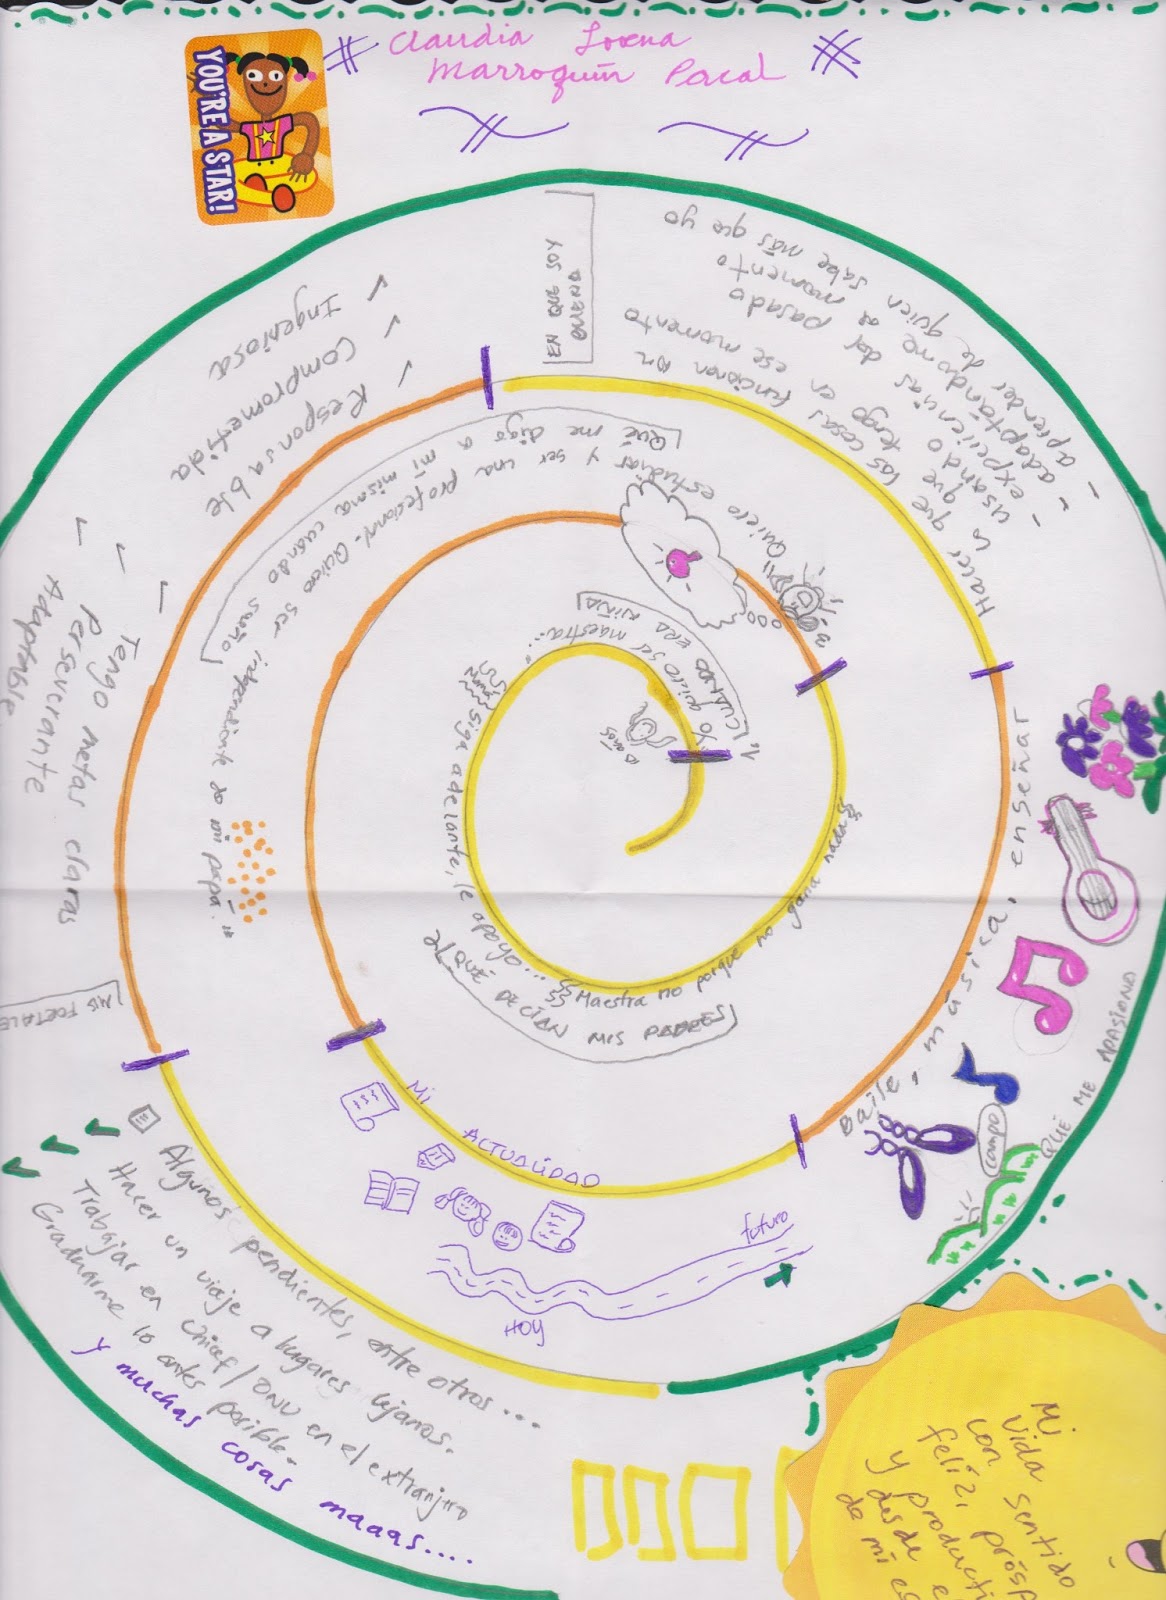 YOU'RE A STAR!
Claudia Lorena
Marroquín Pacal
1. CUANDO ERA NIÑA
"Yo quiero ser maestra.."
2. QUÉ DECÍAN MIS PADRES
Maestra no porque no gana nada
siga adelante, le apoyo...
3.
Qué me digo a mí misma cuando sueño
Quiero estudiar y ser una profesional. Quiero ser independiente de mi papá.
Mi ACTUALIDAD
HOY
futuro
QUÉ ME APASIONA
Baile, música, enseñar
campo
EN QUE SOY
BUENA
Hacer lo que las cosas funcionan en
que tengo en ese momento
- usando experiencias del pasado
- adaptándome al momento
- aprender de quien sabe más que yo
MIS FORTALE
Responsable
Comprometida
Ingeniosa
Tengo metas claras
Perseverante
Adaptable
Algunos pendientes, entre otros...
Hacer un viaje a lugares lejanos.
Trabajar en Unicef/ONU en el extranjero
Graduarme lo antes posible.
y muchas cosas maaas....
Mi
vida
con sentido
feliz, prósp
y producti
desde e
de mi es